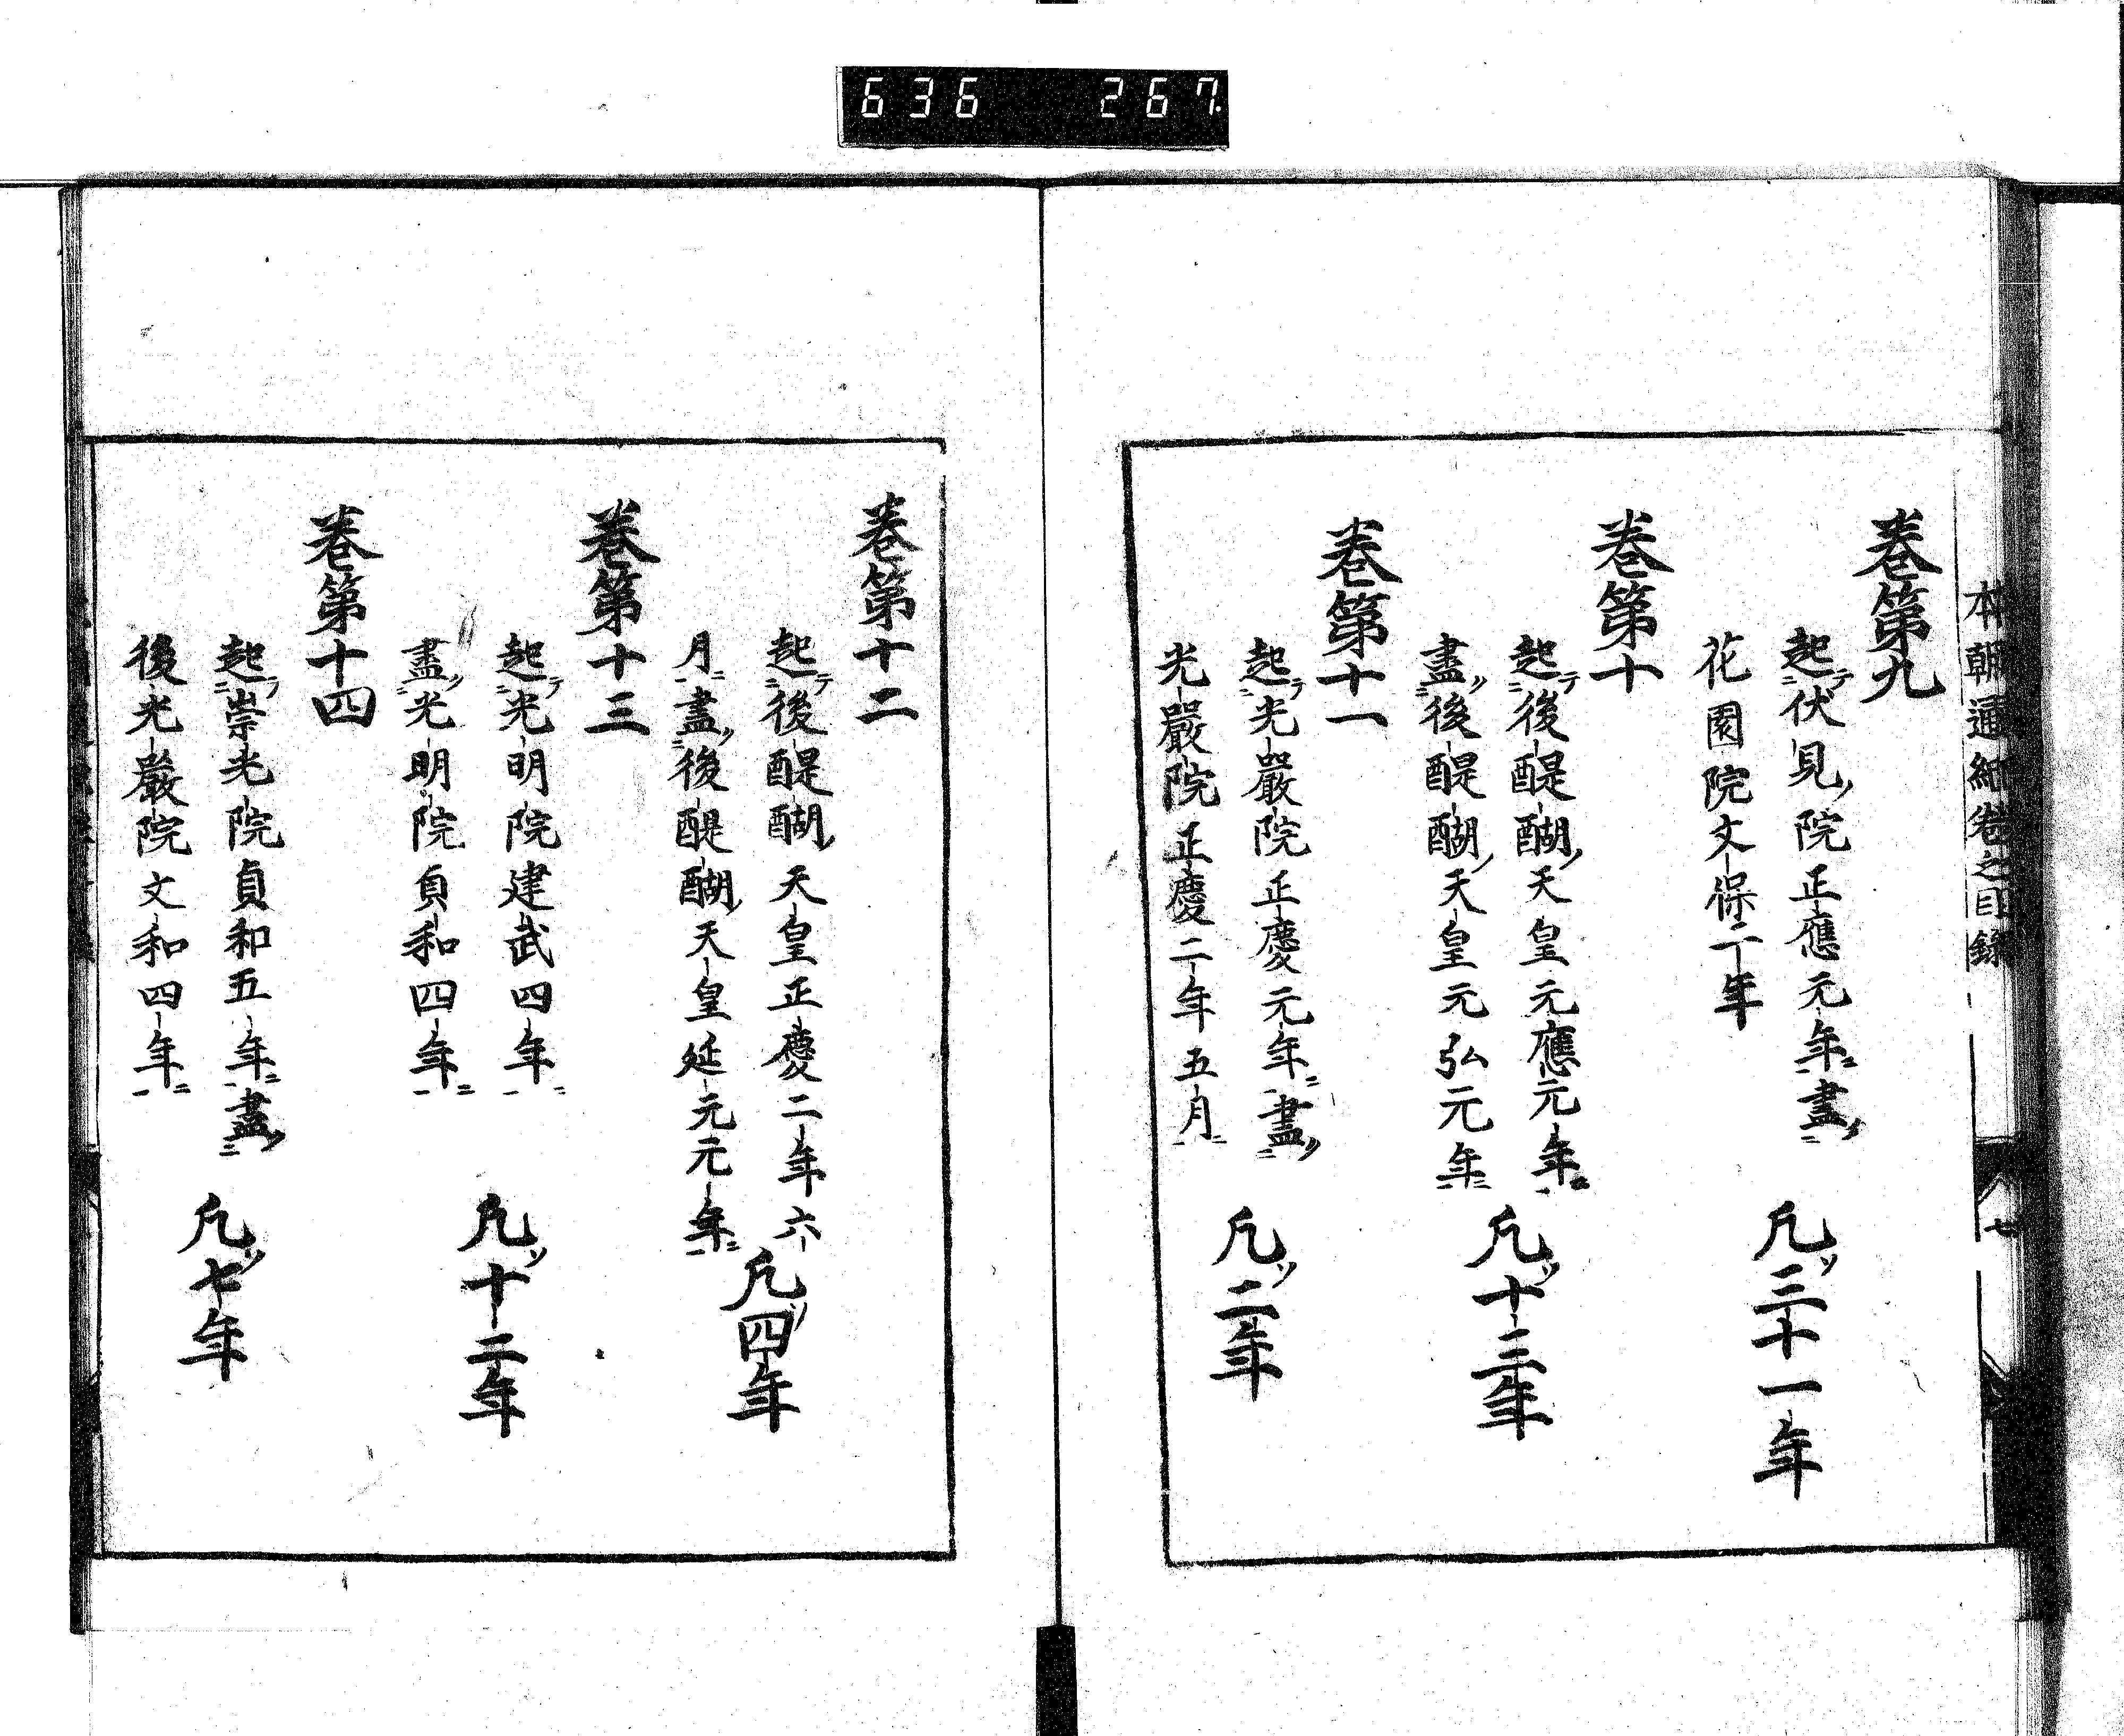 636 267
本朝通紀卷之目録
七
卷第九
起テ伏見ノ院正應元年ニ盡ク
花園院文保二年
凡ソ三十一年
卷第十
起テ後醍醐ノ天皇元應元年ニ
盡ク後醍醐ノ天皇元弘元年
凡ソ十三年
卷第十一
起テ光嚴院正慶元年ニ盡ク
光嚴院正慶二年五月
凡ソ二年
卷第十二
起テ後醍醐ノ天皇正慶二年六
月盡ク後醍醐ノ天皇延元元年ニ
凡ソ四年
卷第十三
起テ光明院建武四年ニ
盡ク光明院貞和四年ニ
凡ソ十二年
卷第十四
起テ崇光院貞和五年ニ盡ク
後光嚴院文和四年ニ
凡ソ七年